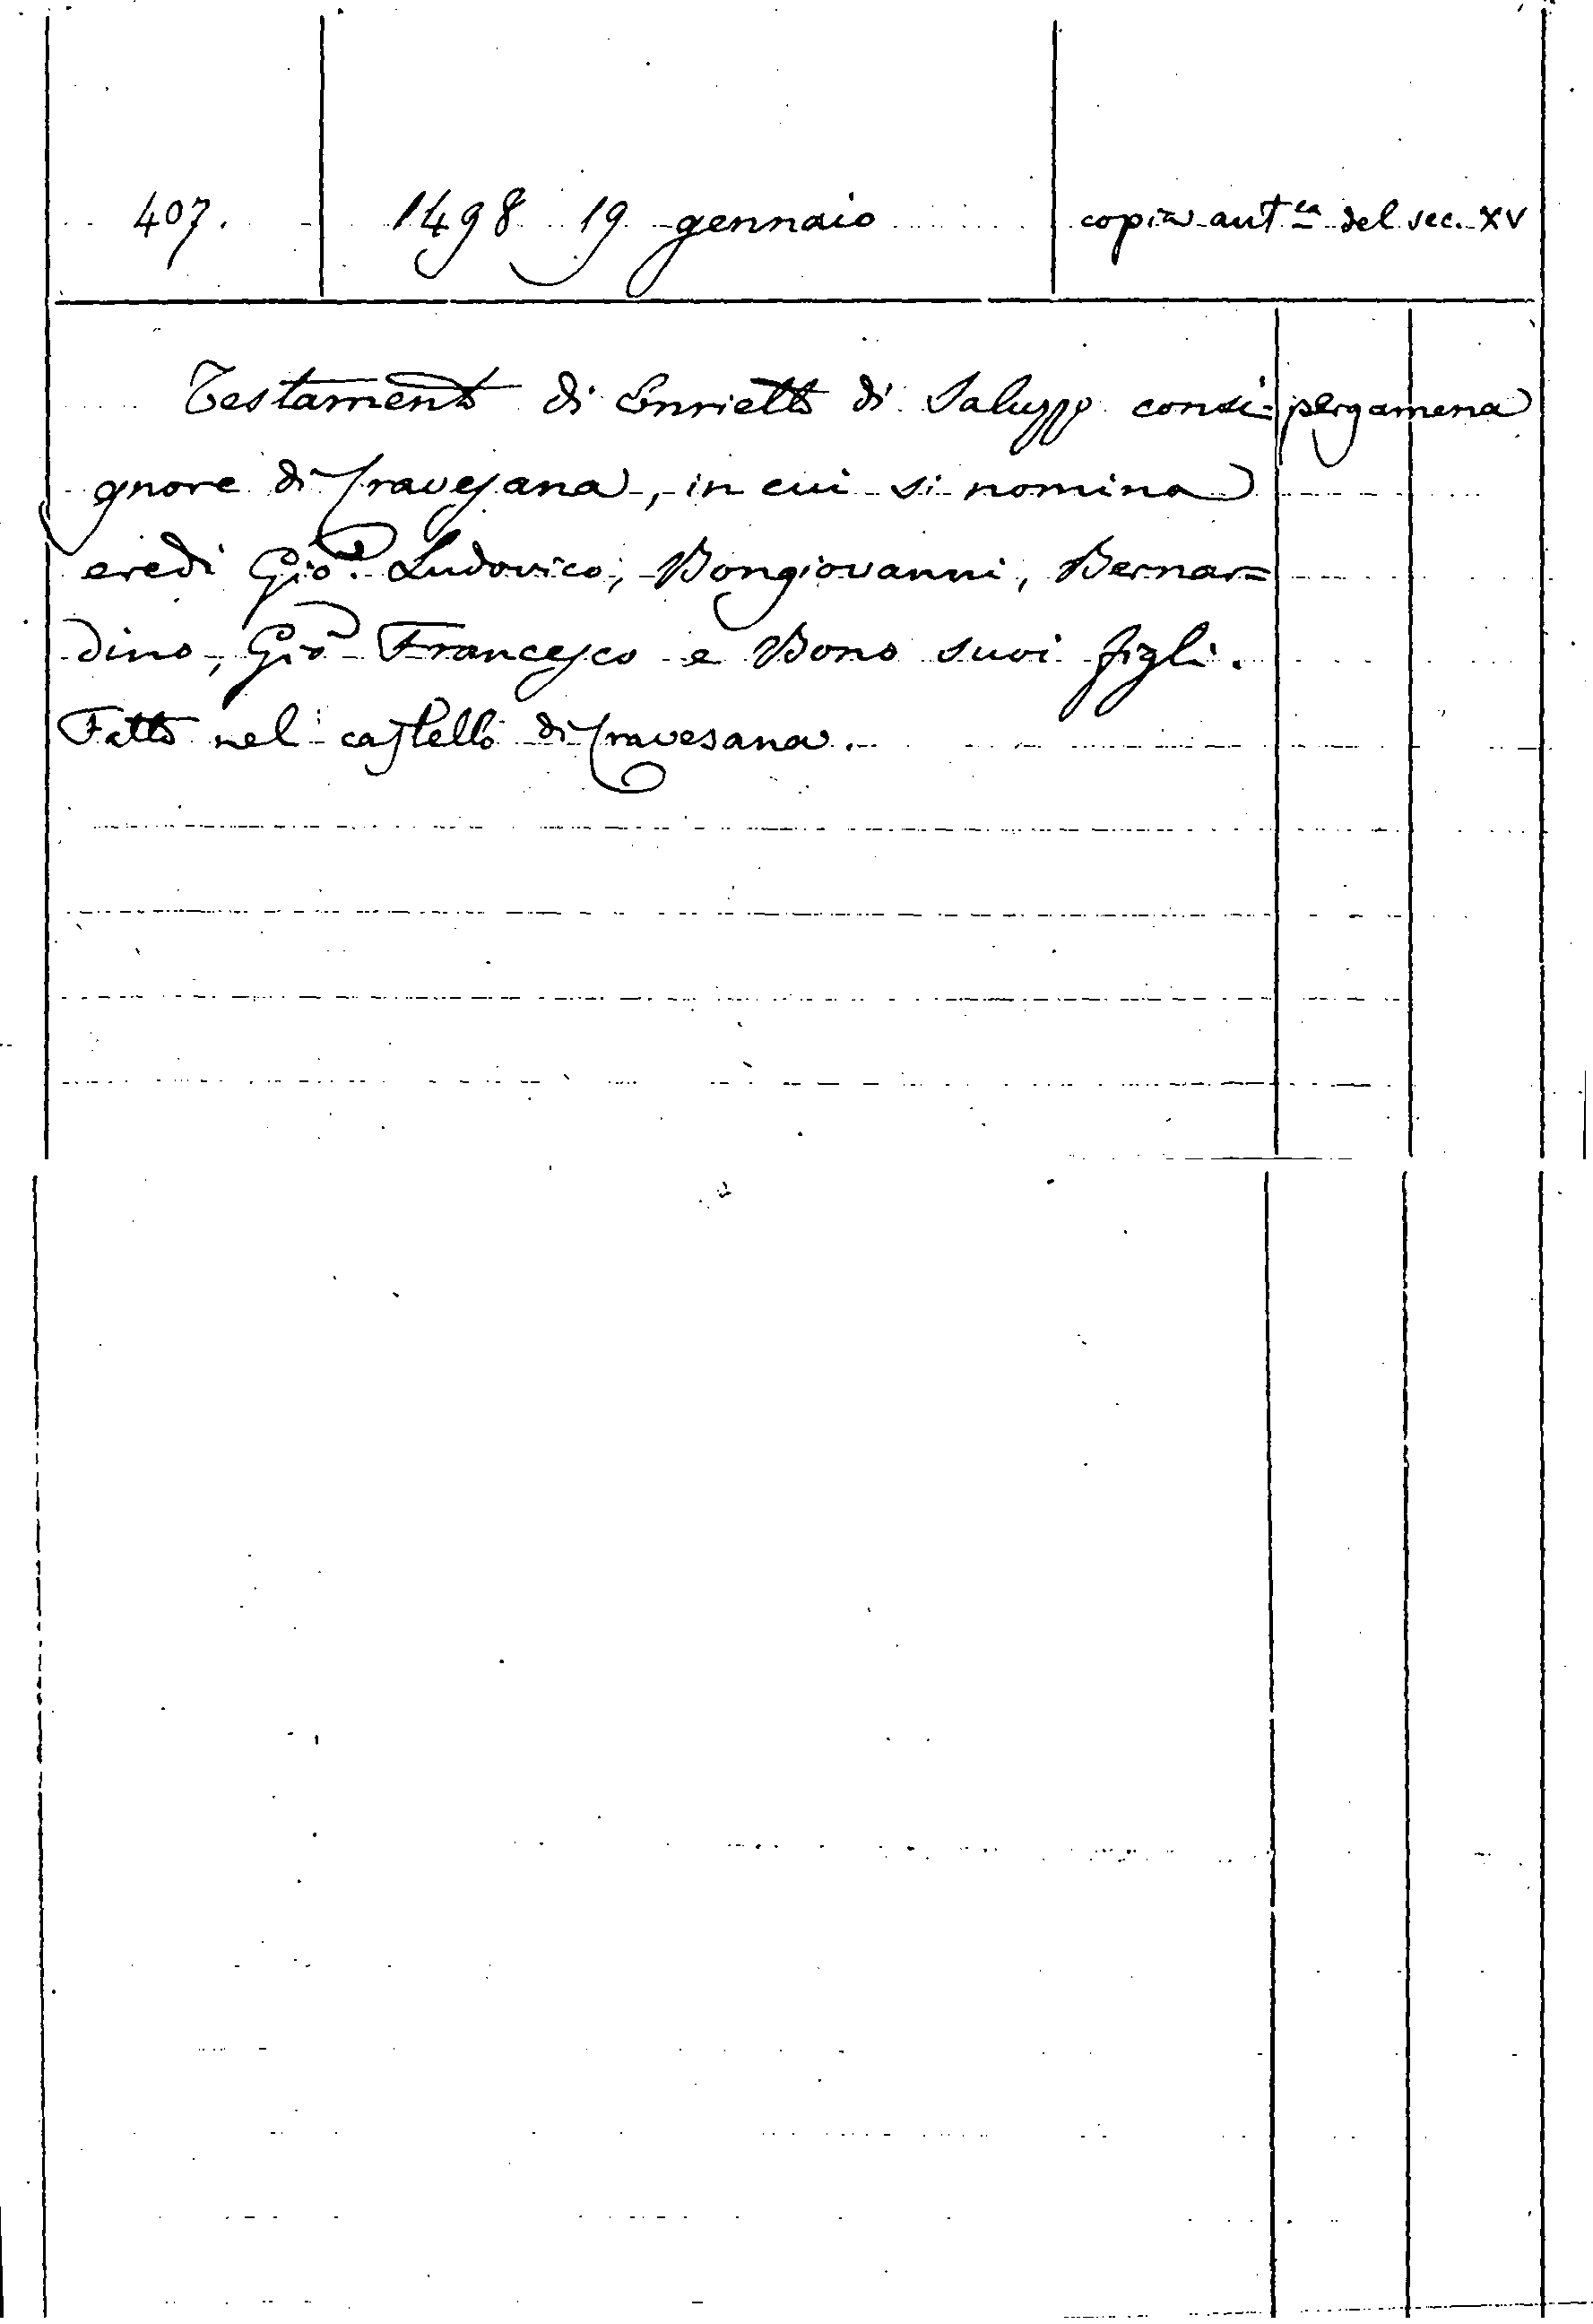 407. 1498 19 gennaio copia aut.ca del sec. XV
Testamento di Enrietto di Saluzzo consi= pergamena
gnore di Cravesana, in cui si nomina
eredi Gio. Ludovico, Bongiovanni, Bernar=
dino, Gio Francesco e Bono suoi figli.
Fatto nel castello di Cravesana.